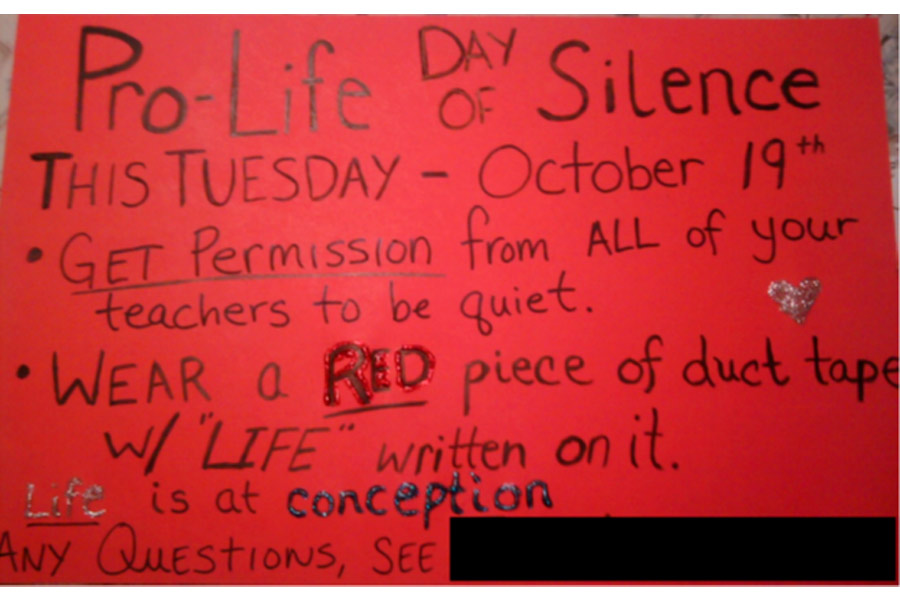 Pro-Life DAY OF Silence
THIS TUESDAY - October 19th
• GET Permission from ALL of your
teachers to be quiet.
• WEAR a RED piece of duct tape
w/ "LIFE" written on it.
Life is at conception
ANY QUESTIONS, SEE